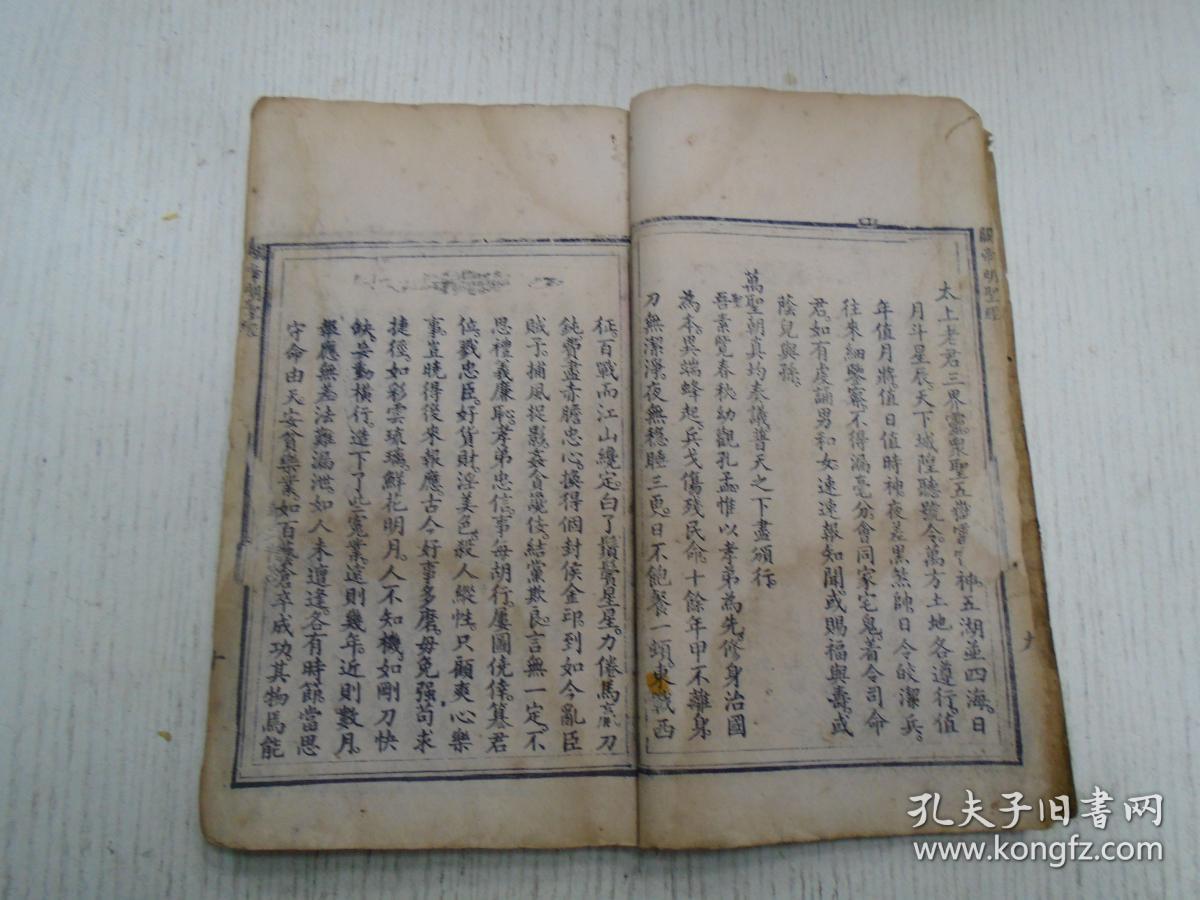 關帝明聖經
太上老君三界靈眾聖五 神五湖並四海日
月斗星辰天下城隍聽號令萬方土地各遵行值
年值月將值日值時神夜差黑煞帥日令皎潔兵
往來細鑒察不得漏毫分會同家宅鬼着令司命
君如有虔誦男和女速速報知聞或賜福與壽或
蔭兒與孫
萬聖朝真均奏議普天之下盡頒行
聖
吾素覽春秋幼觀孔孟惟以孝弟為先修身治國
為本異端蜂起兵戈傷殘民命十餘年甲不離身
刀無潔淨夜無穩睡三更日不飽餐一頓東戰西
九
征百戰而江山纔定白了鬚鬢星星力倦馬 刀
鈍費盡赤膽忠心換得個封侯金印到如今亂臣
賊子捕風捉影姦貪讒佞結黨欺良言無一定不
思禮義廉恥孝弟忠信事每胡行屢圖僥倖篡君
位戮忠臣好貨財淫美色殺人縱性只顧爽心樂
事豈曉得後來報應古今好事多磨毋免强苟求
捷徑如彩雲琉璃鮮花明月人不知機如剛刀快
缺妄動橫行造下了此冤業遠則幾年近則數月
報應無差法難漏泄如人未遭逢各有時節當思
守命由天安貧樂業如百 滄卒成功其物焉能
關帝明聖經
十
孔夫子旧書网
www.kongfz.com